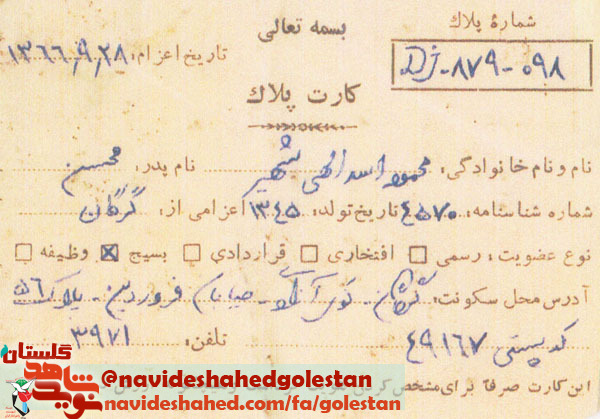 بسمه تعالی
شمارهٔ پلاك
DJ-۸۷۹-۰۹۸
تاریخ اعزام: ۱۳۶۶٫۹٫۲۸
کارت پلاك
نام و نام خانوادگی: محمود اسدالهی شهیر نام پدر: محسن
شماره شناسنامه: ۴۵۷۰ تاریخ تولد: ۱۳۴۵ اعزامی از: گرگان
نوع عضویت: رسمی □ افتخاری □ قراردادی □ بسیج ☒ وظیفه □
آدرس محل سکونت: گرگان - کوی - خیابان فروردین - پلاک ۵۶
کد پستی ۴۹۱۶۷ تلفن: ۳۹۷۱
این کارت صرفاً برای مشخص
گلستان
نوید شاهد
@navideshahedgolestan
navideshahed.com/fa/golestan